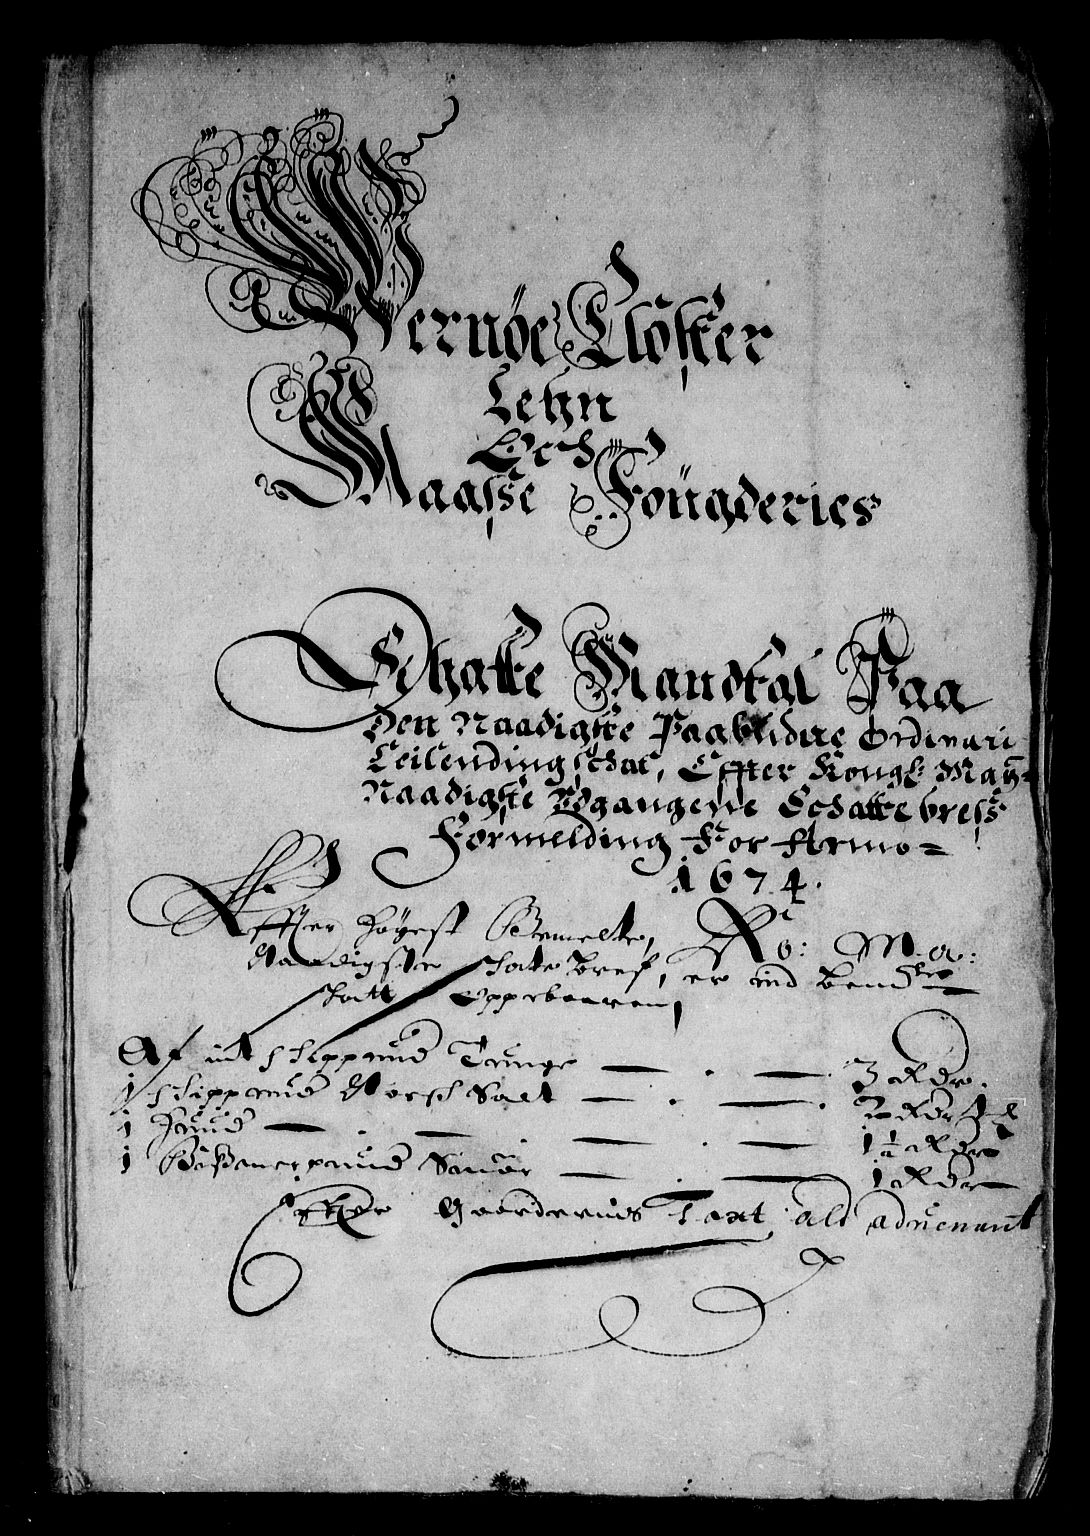 Wernøe Closter
Lehn
Och
Maasse Fougderies
Schatte Mandtal Paa
Den Naadigste Paabudne Ordinari
Leilendingschat, Effter Kongl: May:
Naadigste Udgangene Schatte brefs
Formelding For Anno =
1674.
Effter Høyest Bemelte, Ko: Ma:
Naadigste Schate Bref, er ind
Schatt Oppebaaren,
Af int Schippund Tunge — . — . 3 Rdr.
1 Schippund Norsch Salt — . — . 2 Rdr
1 Huud — . — — . — 1½ Rdr
1 Bismerpund Smør — . — 1 Rdr
Effter Gaardernis Taxt alt advenant